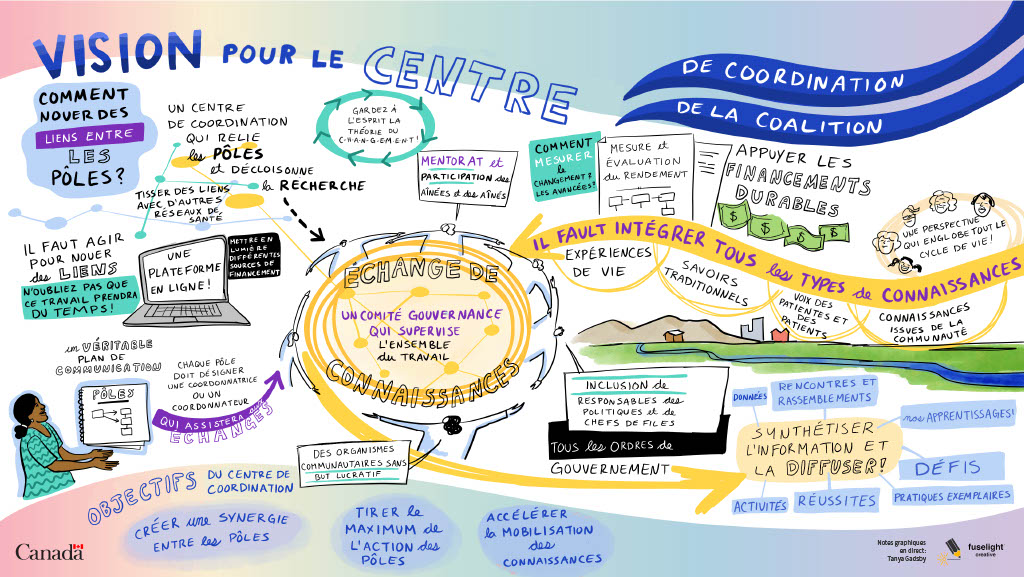 VISION POUR LE CENTRE
DE COORDINATION
DE LA COALITION
COMMENT
NOUER DES
LIENS ENTRE
LES
PÔLES?
UN CENTRE
DE COORDINATION
QUI RELIE
les PÔLES
et DÉCLOISONNE
la RECHERCHE
TISSER DES LIENS
AVEC D'AUTRES
RÉSEAUX DE
SANTÉ
GARDEZ À
L'ESPRIT LA
THÉORIE DU
C-H-A-N-G-E-M-E-N-T!
MENTORAT et
PARTICIPATION des
AÎNÉES et des AÎNÉS
COMMENT
MESURER
le
CHANGEMENT &
LES AVANCÉES?
MESURE et
ÉVALUATION
du RENDEMENT
APPUYER LES
FINANCEMENTS
DURABLES
$ $ $ $
UNE PERSPECTIVE
QUI ENGLOBE TOUT LE
CYCLE DE VIE!
IL FAUT AGIR
POUR NOUER
des LIENS
N'OUBLIEZ PAS QUE
CE TRAVAIL PRENDRA
DU TEMPS!
UNE
PLATEFORME
EN LIGNE!
METTRE EN
LUMIÈRE
DIFFÉRENTES
SOURCES DE
FINANCEMENT
ÉCHANGE DE
UN COMITÉ GOUVERNANCE
QUI SUPERVISE
L'ENSEMBLE
du TRAVAIL
CONNAISSANCES
IL FAULT INTÉGRER TOUS les TYPES de CONNAISSANCES
EXPÉRIENCES
DE VIE
SAVOIRS
TRADITIONNELS
VOIX DES
PATIENTES ET
DES
PATIENTS
CONNAISSANCES
ISSUES DE LA
COMMUNAUTÉ
un VÉRITABLE
PLAN DE
COMMUNICATION
PÔLES
CHAQUE PÔLE
DOIT DÉSIGNER
UNE COORDONNATRICE
OU UN
COORDONNATEUR
QUI ASSISTERA aux
ÉCHANGES
DES ORGANISMES
COMMUNAUTAIRES SANS
BUT LUCRATIF
INCLUSION de
RESPONSABLES des
POLITIQUES et de
CHEFS DE FILES
TOUS les ORDRES de
GOUVERNEMENT
DONNÉES
RENCONTRES ET
RASSEMBLEMENTS
nos APPRENTISSAGES!
SYNTHÉTISER
L'INFORMATION ET
LA DIFFUSER!
DÉFIS
ACTIVITÉS
RÉUSSITES
PRATIQUES EXEMPLAIRES
OBJECTIFS DU CENTRE DE
COORDINATION
CRÉER une SYNERGIE
ENTRE les PÔLES
TIRER le
MAXIMUM de
L'ACTION des
PÔLES
ACCÉLÉRER
la MOBILISATION
des
CONNAISSANCES
Canada
Notes graphiques
en direct:
Tanya Gadsby
fuselight
creative